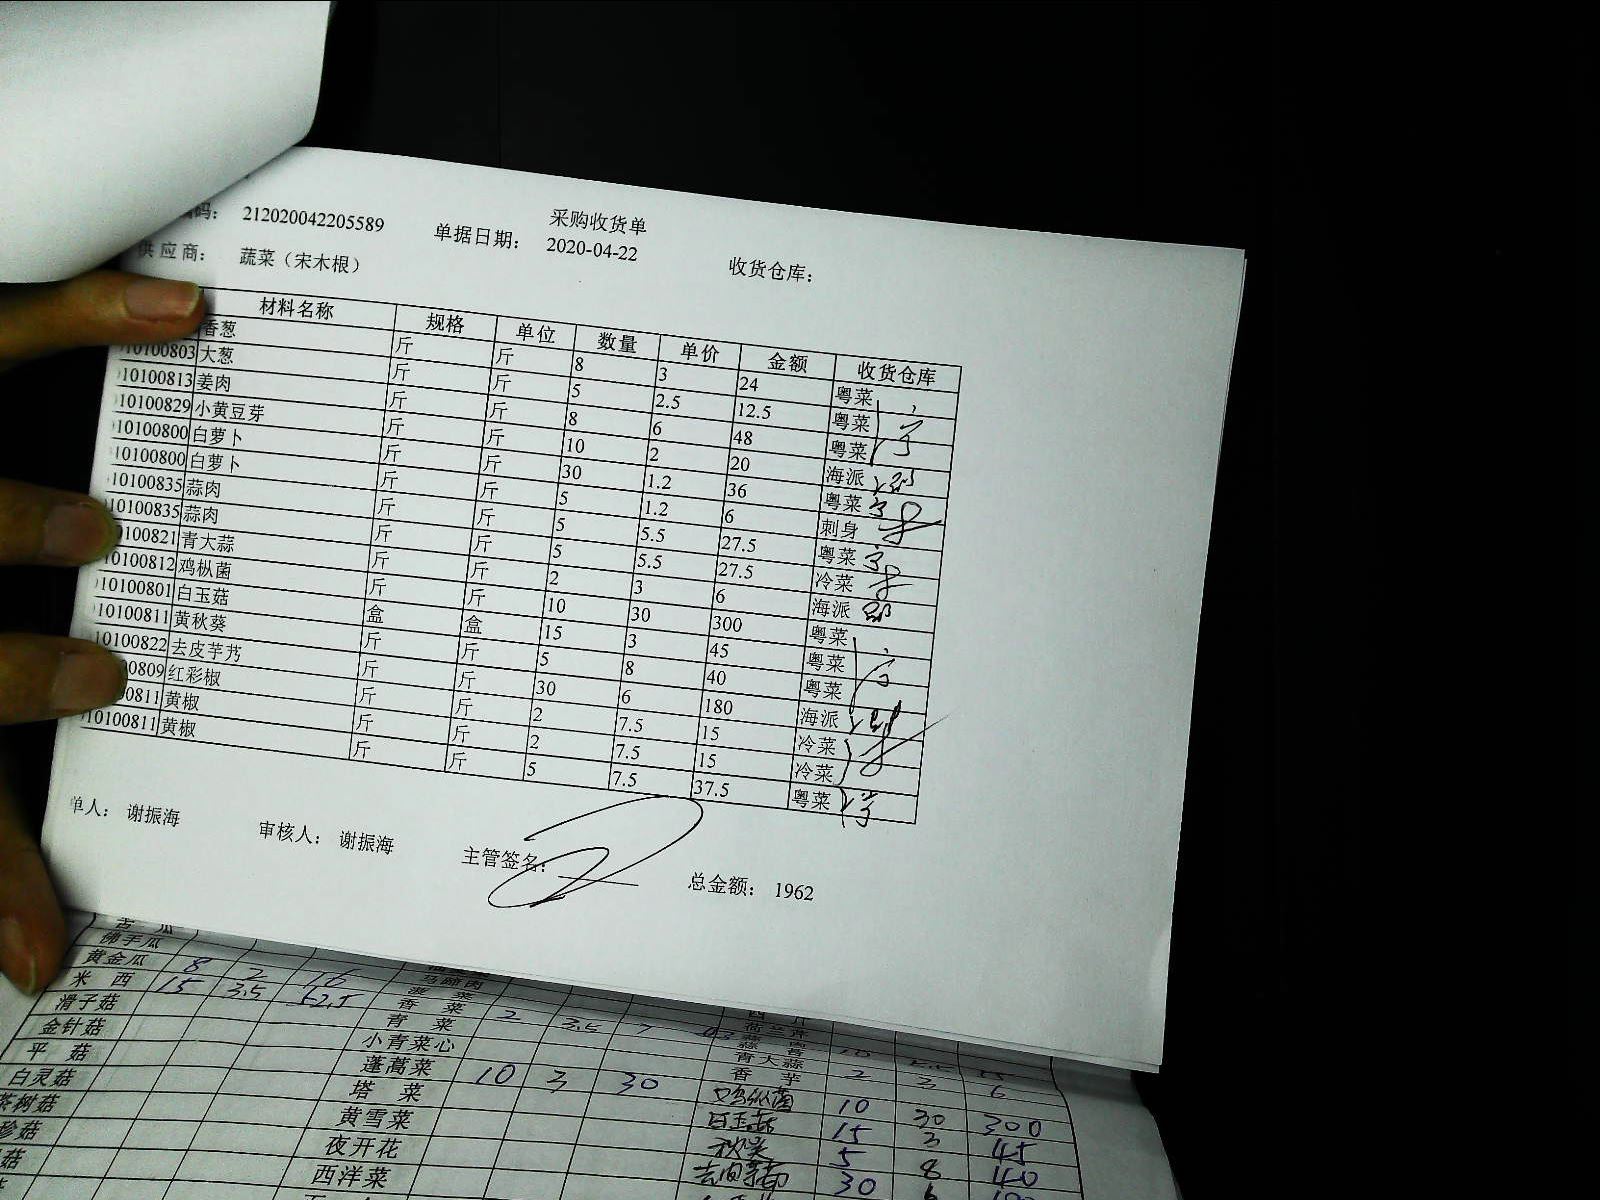 码： 212020042205589 采购收货单
单据日期： 2020-04-22 收货仓库：
供应商： 蔬菜（宋木根）
材料名称 规格 单位 数量 单价 金额 收货仓库
香葱 斤 斤 8 3 24 粤菜
10100803 大葱 斤 斤 5 2.5 12.5 粤菜
10100813 姜肉 斤 斤 8 6 48 粤菜
10100829 小黄豆芽 斤 斤 10 2 20 海派
10100800 白萝卜 斤 斤 30 1.2 36 粤菜
10100800 白萝卜 斤 斤 5 1.2 6 刺身
10100835 蒜肉 斤 斤 5 5.5 27.5 粤菜
10100835 蒜肉 斤 斤 5 5.5 27.5 冷菜
10100821 青大蒜 斤 斤 2 3 6 海派
10100812 鸡枞菌 斤 斤 10 30 300 粤菜
10100801 白玉菇 盒 盒 15 3 45 粤菜
10100811 黄秋葵 斤 斤 5 8 40 粤菜
10100822 去皮芋艿 斤 斤 30 6 180 海派
00809 红彩椒 斤 斤 2 7.5 15 冷菜
0811 黄椒 斤 斤 2 7.5 15 冷菜
10100811 黄椒 斤 斤 5 7.5 37.5 粤菜
单人： 谢振海 审核人： 谢振海 主管签名： 总金额： 1962
苦 瓜
佛手瓜
黄金瓜 8 2 16 马蹄肉
米 西 15 3.5 52.5 菠 菜
滑子菇 香 菜 2 3.5 7
金针菇 青 菜 蒜 苔 10
平 菇 小青菜心 青大蒜 2 3 6
白灵菇 蓬蒿菜 10 3 30 香 芋
茶树菇 塔 菜 鸡枞菌 10 30 300
珍菇 黄雪菜 白玉菇 15 3 45
菇 夜开花 秋葵 5 8 40
西洋菜 30 6